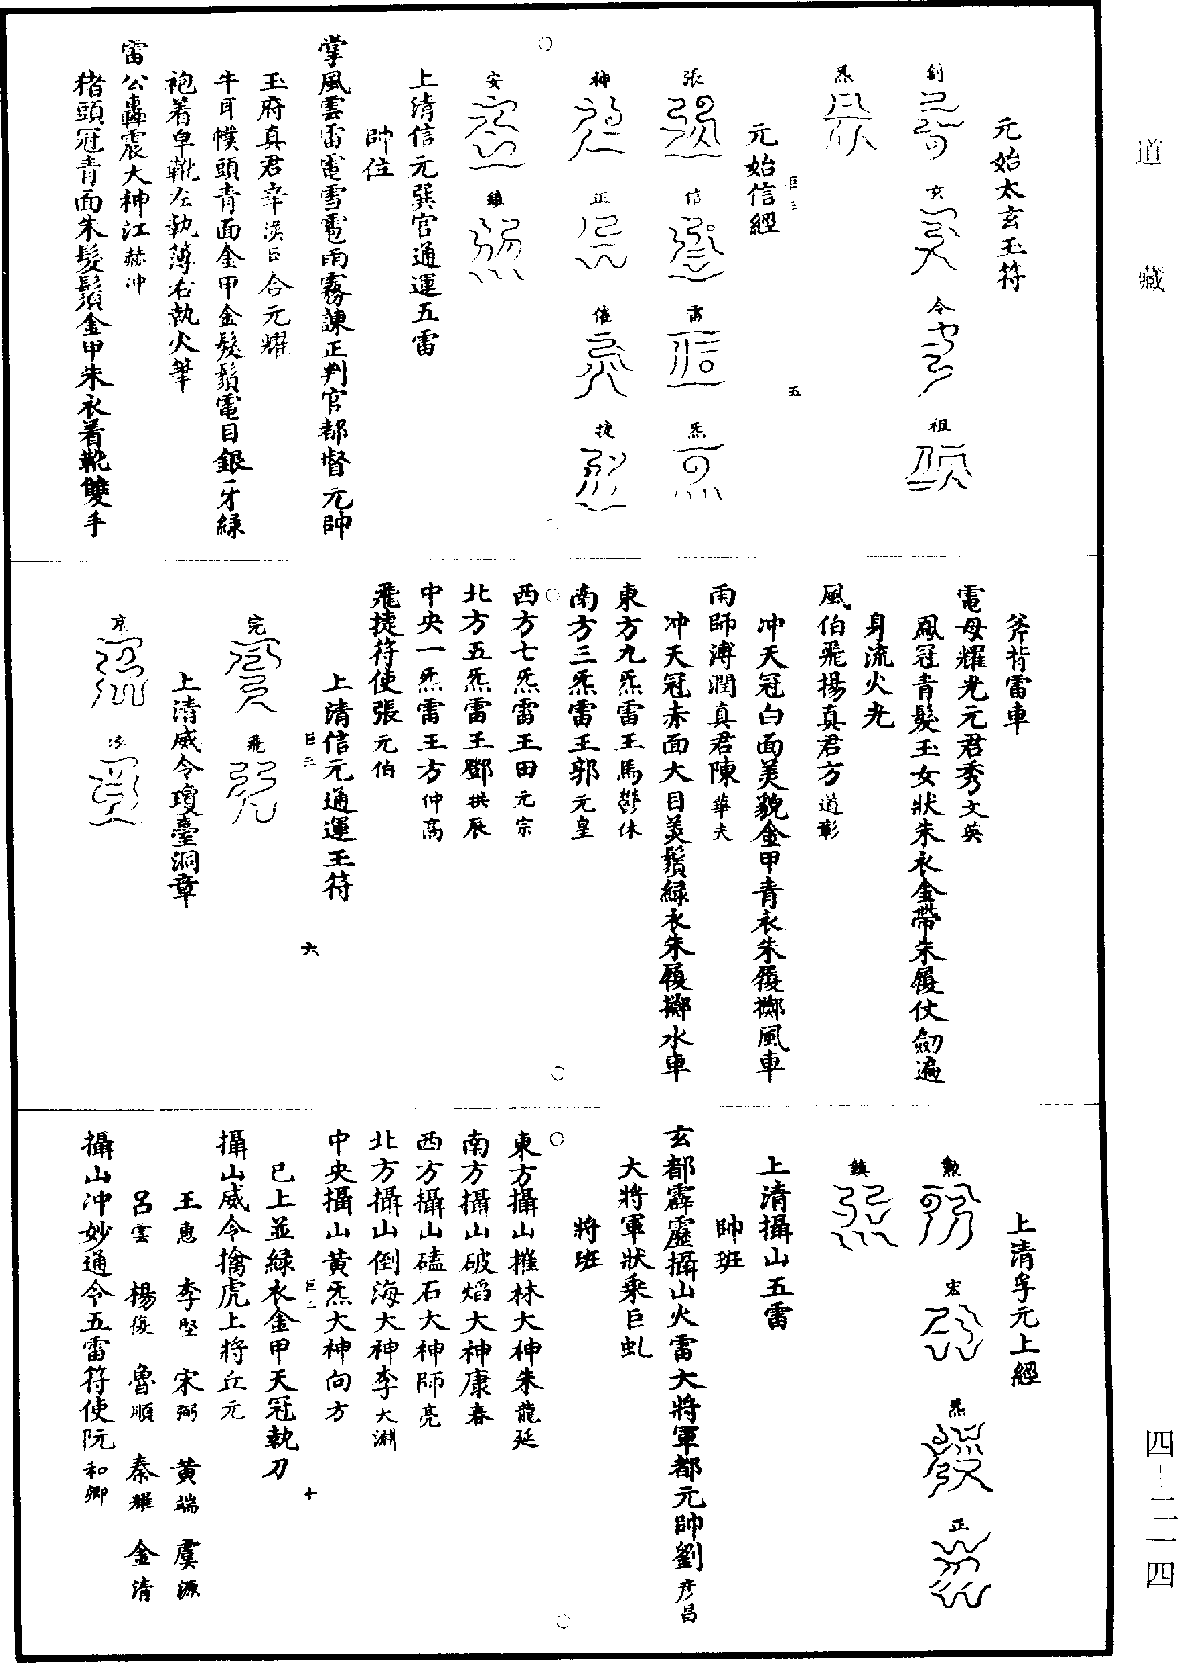 道藏
元始太玄玉符
劄 玄 令 祖
炁
元始信經
張 信 雷 炁
神 正 催 捷
安 鎮
上清信元巽官通運五雷
帥位
掌風雲雷電雪雹雨霧諫正判官都督元帥
玉府真君辛漢臣合元耀
牛耳幞頭青面金甲金髮鬚電目銀牙綠
袍着皁靴左執薄右執火筆
雷公轟震大神江赫冲
猪頭冠青面朱髮鬚金甲朱衣着靴雙手
五
斧背雷車
電母耀光元君秀文英
鳳冠青髮玉女狀朱衣金帶朱履仗劒遍
身流火光
風伯飛揚真君方道彰
冲天冠白面美貌金甲青衣朱履擲風車
雨師溥潤真君陳華夫
冲天冠赤面大目美鬚綠衣朱履擲水車
東方九炁雷王馬鬱休
南方三炁雷王郭元皇
西方七炁雷王田元宗
北方五炁雷王鄧拱辰
中央一炁雷王方仲高
飛捷符使張元伯
上清信元通運玉符
六
完 飛
上清威令瓊臺洞章
京
上清孚元上經
敕 宏 炁 正
鎮
上清攝山五雷
帥班
玄都霹靂攝山火雷大將軍都元帥劉彥昌
大將軍狀乘巨虬
將班
東方攝山摧林大神朱龍延
南方攝山破焰大神康春
西方攝山磕石大神師亮
北方攝山倒海大神李大淵
中央攝山黃炁大神向方
已上並綠衣金甲天冠執刀
十
攝山威令擒虎上將丘元
王惠 李堅 宋弼 黃端 虞源
呂雲 楊俊 魯順 秦耀 金清
攝山沖妙通令五雷符使阮和卿
四-二一四